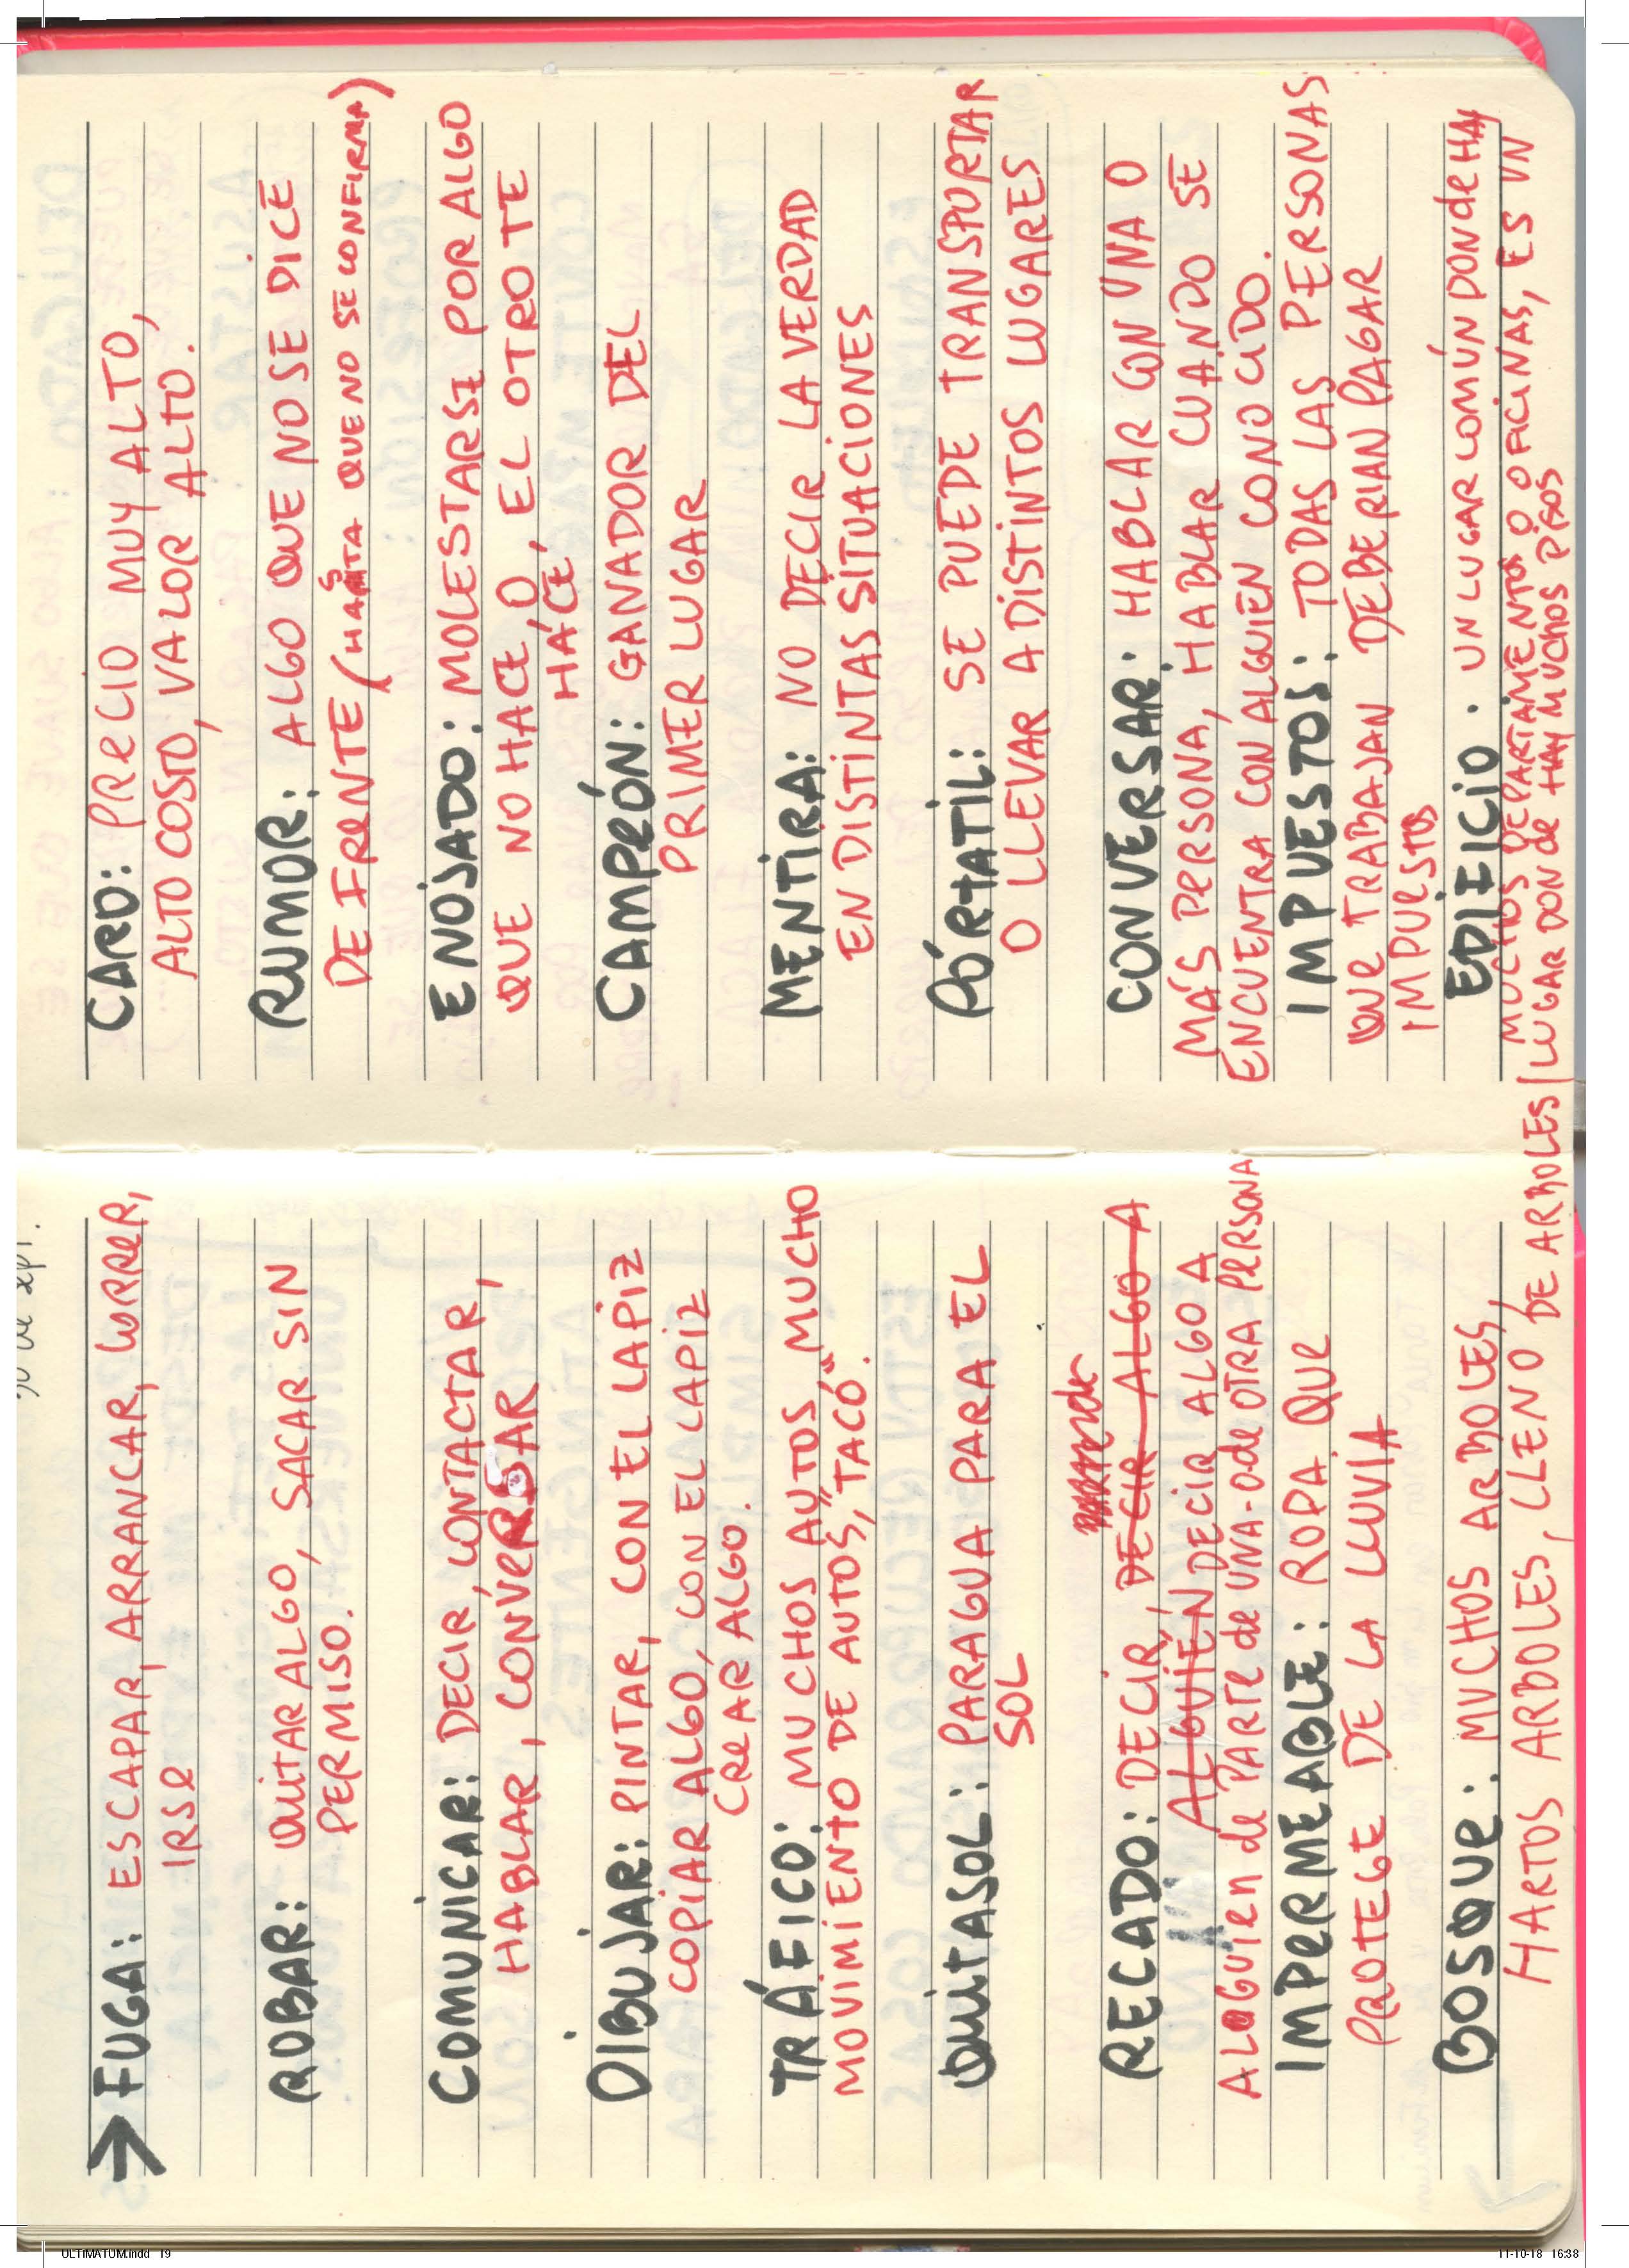 → FUGA: ESCAPAR, ARRANCAR, CORRER,
IRSE
ROBAR: QUITAR ALGO, SACAR SIN
PERMISO.
COMUNICAR: DECIR, CONTACTAR,
HABLAR, CONVERSAR
DIBUJAR: PINTAR, CON EL LAPIZ
COPIAR ALGO, CON EL LAPIZ
CREAR ALGO.
TRÁFICO: MUCHOS AUTOS, MUCHO
MOVIMIENTO DE AUTOS, "TACO".
QUITASOL: PARAGUA PARA EL
SOL
RECADO: DECIR, DECIR ALGO A
ALGUIÉN DECIR ALGO A
ALGUIEN de PARTE de UNA o de OTRA PERSONA
IMPERMEABLE: ROPA QUE
PROTEGE DE LA LLUVIA
BOSQUE: MUCHOS ARBOLES,
HARTOS ARBOLES, LLENO DE ARBOLES
CARO: PRECIO MUY ALTO,
ALTO COSTO, VALOR ALTO.
RUMOR: ALGO QUE NO SE DICE
DE FRENTE (HASTA QUE NO SE CONFIRMA)
ENOJADO: MOLESTARSE POR ALGO
QUE NO HACE, O, EL OTRO TE
HACE,
CAMPEÓN: GANADOR DEL
PRIMER LUGAR
MENTIRA: NO DECIR LA VERDAD
EN DISTINTAS SITUACIONES
PÓRTATIL: SE PUEDE TRANSPORTAR
O LLEVAR A DISTINTOS LUGARES
CONVERSAR: HABLAR CON UNA O
MÁS PERSONA, HABLAR CUANDO SE
ENCUENTRA CON ALGUIEN CONOCIDO.
IMPUESTOS: TODAS LAS PERSONAS
QUE TRABAJAN DEBERIAN PAGAR
IMPUESTOS
EDIFICIO: UN LUGAR COMÚN DONDE HAY
MUCHOS DEPARTAMENTOS O OFICINAS, ES UN
LUGAR DONDE HAY MUCHOS PISOS
ULTIMATUM.indd 19
11-10-18 16:38